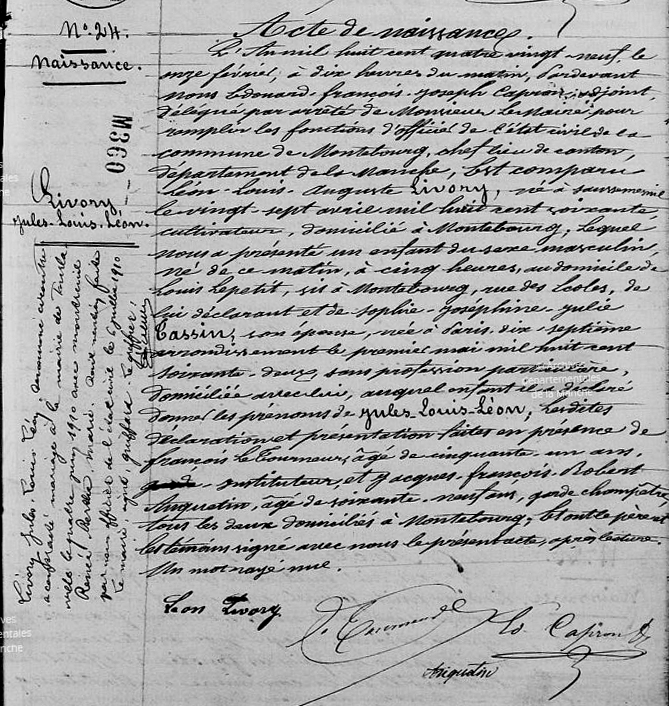 N° 24.
Naissance.
M360
Livory
Jules-Louis-Léon.
Acte de naissance.
L'An mil huit cent quatre vingt-neuf, le
onze février, à dix heures du matin, Pardevant
nous Edouard-françois-Joseph Capron, adjoint,
délégué par arrêté de Monsieur le Maire, pour
remplir les fonctions d'officier de l'état civil de la
commune de Montebourg, chef lieu de canton,
département de la Manche, Est comparu
Léon-Louis-Auguste Livory, né à
le vingt-sept avril mil huit cent soixante,
cultivateur, domicilié à Montebourg, Lequel
nous a présenté un enfant du sexe masculin
né de ce matin, à cinq heures, au domicile de
Louis Lepetit, sis à Montebourg, rue des Ecoles, de
lui déclarant et de Sophie-Joséphine-Julie
Tassin, son épouse, née à Paris, dix-septième
arrondissement le premier mai mil huit cent
soixante-deux, sans profession particulière,
domiciliée avec lui, auquel enfant il a déclaré
donner les prénoms de Jules-Louis-Léon, Lesdites
déclaration et présentation faites en présence de
françois le Tourneur, âgé de cinquante-un ans,
instituteur, et Jacques-françois-Robert
Anquetin, âgé de soixante-neuf ans, garde champêtre
tous les deux domiciliés à Montebourg, Et ont le père et
les témoins signé avec nous le présent acte, après lecture.
Un mot rayé nul.
Livory Jules Louis Léon
a contracté mariage à la mairie de
ville le quatre juin 1910 avec
Renée Bertha Marie. Dont mention faite
par nous officier de l'état civil le 6 juillet 1910
Le maire, signé: Le greffier,
Léon Livory
Ed Capron
Anquetin
archives
départementales
de la Manche